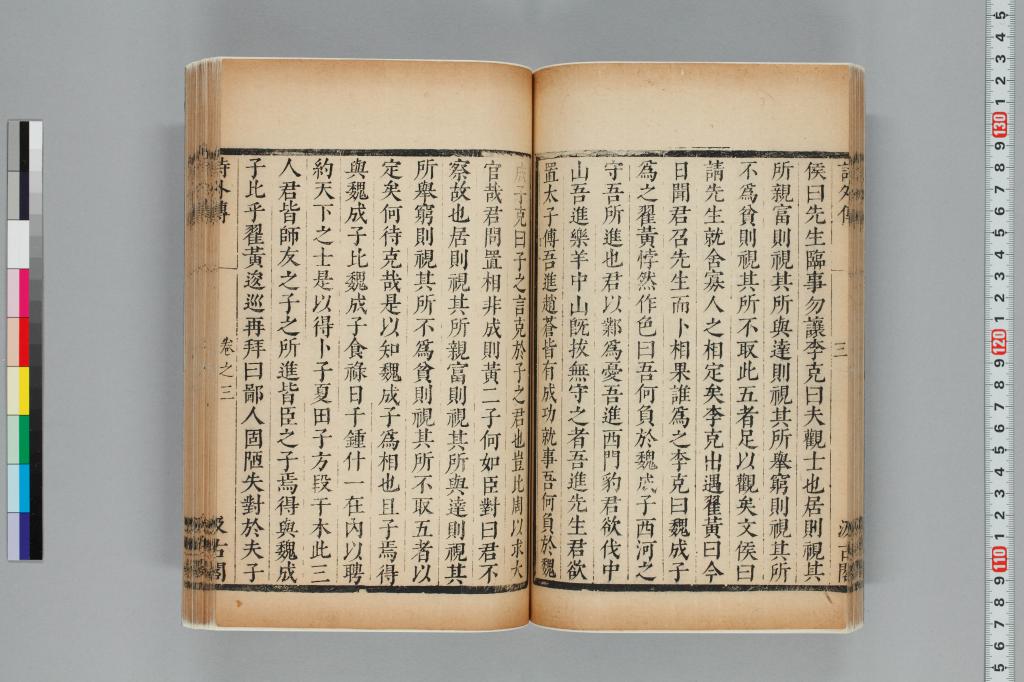 侯曰先生臨事勿讓李克曰夫觀士也居則視其
所親富則視其所與達則視其所舉窮則視其所
不為貧則視其所不取此五者足以觀矣文侯曰
請先生就舍寡人之相定矣李克出遇翟黃曰今
日聞君召先生而卜相果誰為之李克曰魏成子
為之翟黃悖然作色曰吾何負於魏成子西河之
守吾所進也君以鄴為憂吾進西門豹君欲伐中
山吾進樂羊中山旣拔無守之者吾進先生君欲
置太子傅吾進趙蒼皆有成功就事吾何負於魏
成子克曰子之言克於子之君也豈比周以求大
官哉君問置相非成則黃二子何如臣對曰君不
察故也居則視其所親富則視其所與達則視其
所舉窮則視其所不為貧則視其所不取五者以
定矣何待克哉是以知魏成子為相也且子焉得
與魏成子比魏成子食祿日千鍾什一在內以聘
約天下之士是以得卜子夏田子方段干木此三
人君皆師友之子之所進皆臣之子焉得與魏成
子比乎翟黃逡巡再拜曰鄙人固陋失對於夫子
詩外傳
卷之三
汲古閣
詩外傳
三
汲古閣
5 4 3 2 1
130
9 8 7 6 5 4 3 2 1
120
9 8 7 6 5 4 3 2 1
110
9 8 7 6 5